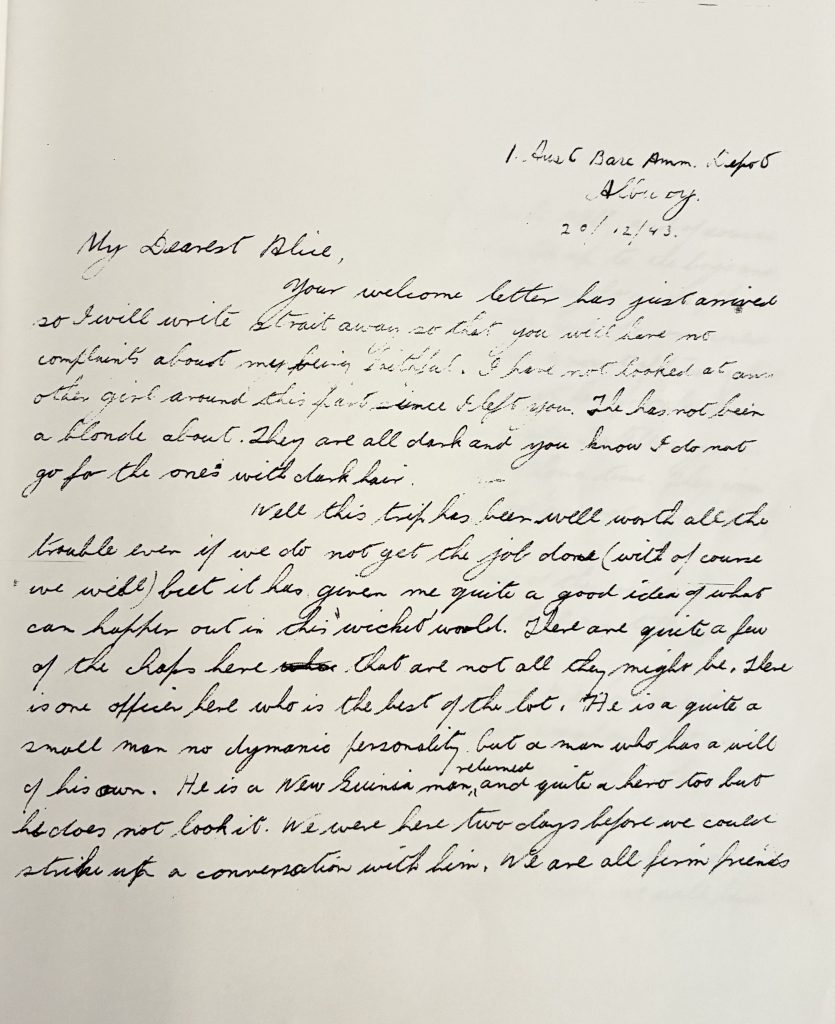 1. Aust Base Amm. Depot
Albury.
20/12/43.
My Dearest Alice,
Your welcome letter has just arrived
so I will write strait away so that you will have no
complaints about my being faithful. I have not looked at any
other girl around this part since I left you. The has not been
a blonde about. They are all dark and you know I do not
go for the ones with dark hair.
Well this trip has been well worth all the
trouble even if we do not get the job done (with of course
we will) but it has given me quite a good idea of what
can happen out in this "wicket" world. There are quite a few
of the chaps here that are not all they might be. There
is one officer here who is the best of the lot. He is a quite a
small man no dymanic personality but a man who has a will
of his own. He is a New Guinia man, returned and quite a hero too but
he does not look it. We were here two days before we could
strike up a conversation with him. We are all firm friends